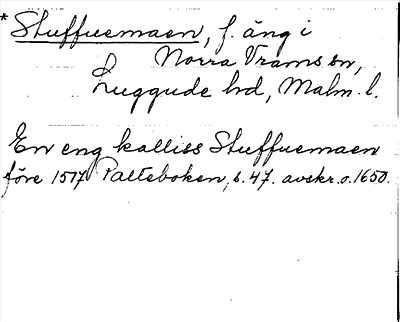 * Stuffuemaen, f. äng i
Norra Vrams sn,
Luggude hd, Malm. l.
En eng kalliss Stuffuemaen
före 1517 Palteboken, s. 47. avskr. o. 1650.